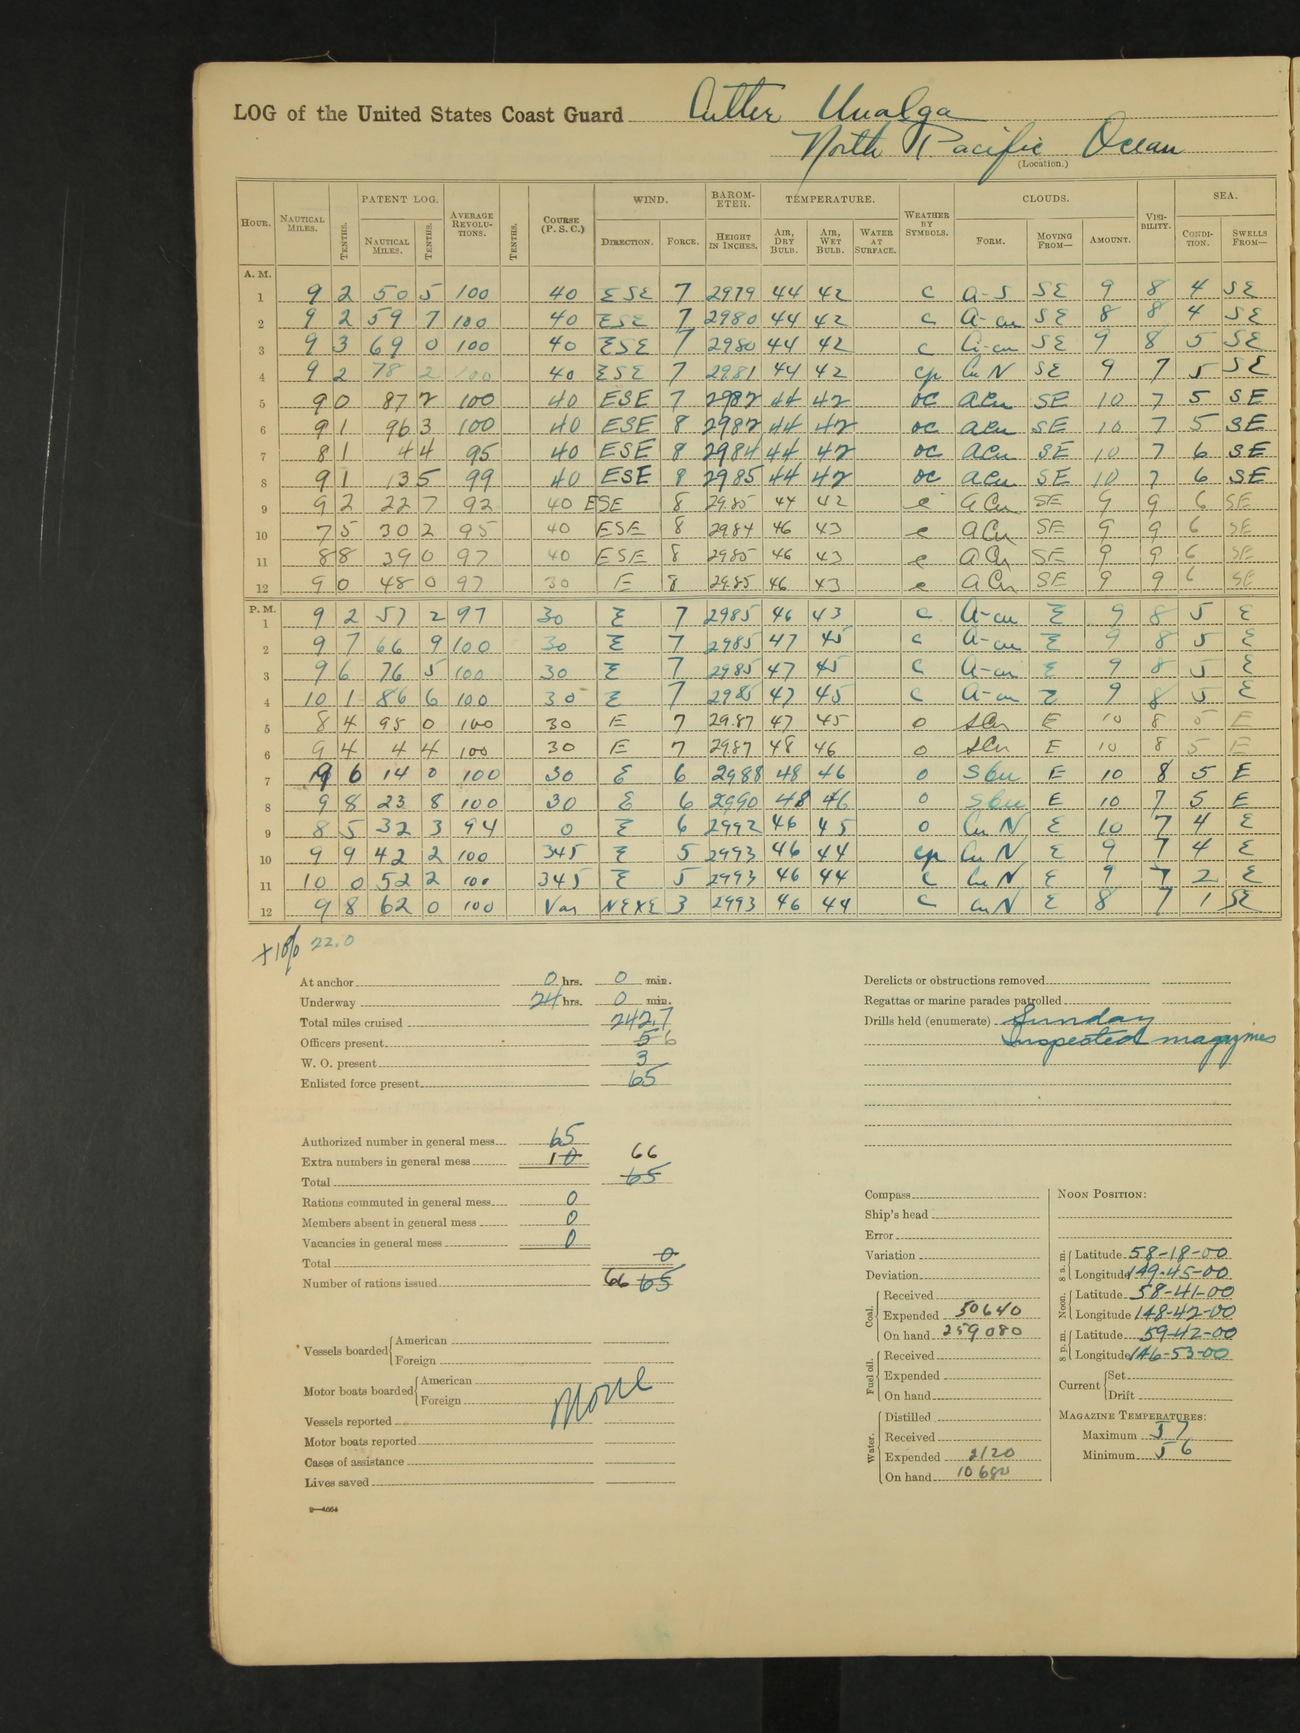 LOG of the United States Coast Guard Cutter Unalga
North Pacific Ocean
(Location.)
HOUR. NAUTICAL MILES. TENTHS. PATENT LOG. NAUTICAL MILES. TENTHS. AVERAGE REVOLUTIONS. TENTHS. COURSE (P. S. C.) WIND. DIRECTION. FORCE. BAROMETER. HEIGHT IN INCHES. TEMPERATURE. AIR, DRY BULB. AIR, WET BULB. WATER AT SURFACE. WEATHER BY SYMBOLS. CLOUDS. FORM. MOVING FROM— AMOUNT. VISIBILITY. SEA. CONDITION. SWELLS FROM—
A. M.
1 9 2 50 5 100 40 ESE 7 2979 44 42 c A-S SE 9 8 4 SE
2 9 2 59 7 100 40 ESE 7 2980 44 42 c A-cu SE 8 8 4 SE
3 9 3 69 0 100 40 ESE 7 2980 44 42 c A-cu SE 9 8 5 SE
4 9 2 78 2 100 40 ESE 7 2981 44 42 cp Cu N SE 9 7 5 SE
5 9 0 87 2 100 40 ESE 7 2982 44 42 oc ACu SE 10 7 5 SE
6 9 1 96 3 100 40 ESE 8 2982 44 42 oc ACu SE 10 7 5 SE
7 8 1 4 4 95 40 ESE 8 2984 44 42 oc ACu SE 10 7 6 SE
8 9 1 13 5 99 40 ESE 8 2985 44 42 oc ACu SE 10 7 6 SE
9 9 2 22 7 92 40 ESE 8 29.85 44 42 c ACu SE 9 9 6 SE
10 7 5 30 2 95 40 ESE 8 29.84 46 43 c ACu SE 9 9 6 SE
11 8 8 39 0 97 40 ESE 8 29.85 46 43 c ACu SE 9 9 6 SE
12 9 0 48 0 97 30 E 8 29.85 46 43 c ACu SE 9 9 6 SE
P. M.
1 9 2 57 2 97 30 E 7 2985 46 43 c A-cu E 9 8 5 E
2 9 7 66 9 100 30 E 7 2985 47 45 c A-cu E 9 8 5 E
3 9 6 76 5 100 30 E 7 2985 47 45 c A-cu E 9 8 5 E
4 10 1 86 6 100 30 E 7 2985 47 45 c A-cu E 9 8 5 E
5 8 4 95 0 100 30 E 7 29.87 47 45 o SCu E 10 8 5 E
6 9 4 4 4 100 30 E 7 29.87 48 46 o SCu E 10 8 5 E
7 9 6 14 0 100 30 E 6 2988 48 46 o SCu E 10 8 5 E
8 9 8 23 8 100 30 E 6 2990 48 46 o SCu E 10 7 5 E
9 8 5 32 3 94 0 E 6 2992 46 45 o Cu N E 10 7 4 E
10 9 9 42 2 100 345 E 5 2993 46 44 cp Cu N E 9 7 4 E
11 10 0 52 2 100 345 E 5 2993 46 44 c Cu N E 9 7 2 E
12 9 8 62 0 100 Var NEXE 3 2993 46 44 c Cu N E 8 7 1 SE
+10% 22.0
At anchor 0 hrs. 0 min.
Underway 24 hrs. 0 min.
Total miles cruised 242.7
Officers present 5 6
W. O. present 3
Enlisted force present 65
Authorized number in general mess 65
Extra numbers in general mess 1 0 66
Total 65
Rations commuted in general mess 0
Members absent in general mess 0
Vacancies in general mess 0
Total 0
Number of rations issued 66 65
Vessels boarded American
Foreign
Motor boats boarded American
Foreign
None
Vessels reported
Motor boats reported
Cases of assistance
Lives saved
9—4664
Derelicts or obstructions removed
Regattas or marine parades patrolled
Drills held (enumerate) Sunday
Inspected magazines
Compass
Ship's head
Error
Variation
Deviation
Coal. Received
Expended 50640
On hand 259080
Fuel oil. Received
Expended
On hand
Water. Distilled
Received
Expended 2120
On hand 10680
NOON POSITION:
8 a. m. Latitude 58-18-00
Longitude 149-45-00
Noon. Latitude 58-41-00
Longitude 148-42-00
8 p. m. Latitude 59-42-00
Longitude 146-53-00
Current Set
Drift
MAGAZINE TEMPERATURES:
Maximum 57
Minimum 56